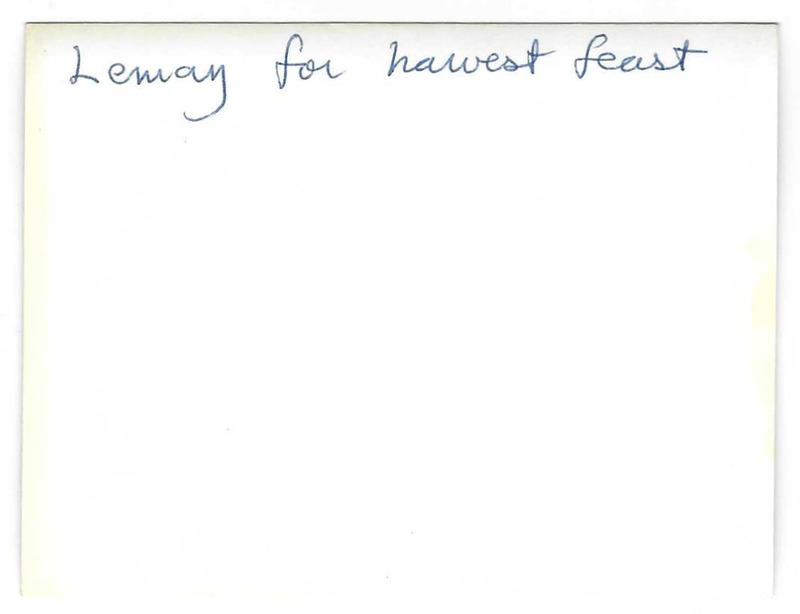 Lemay for harvest feast